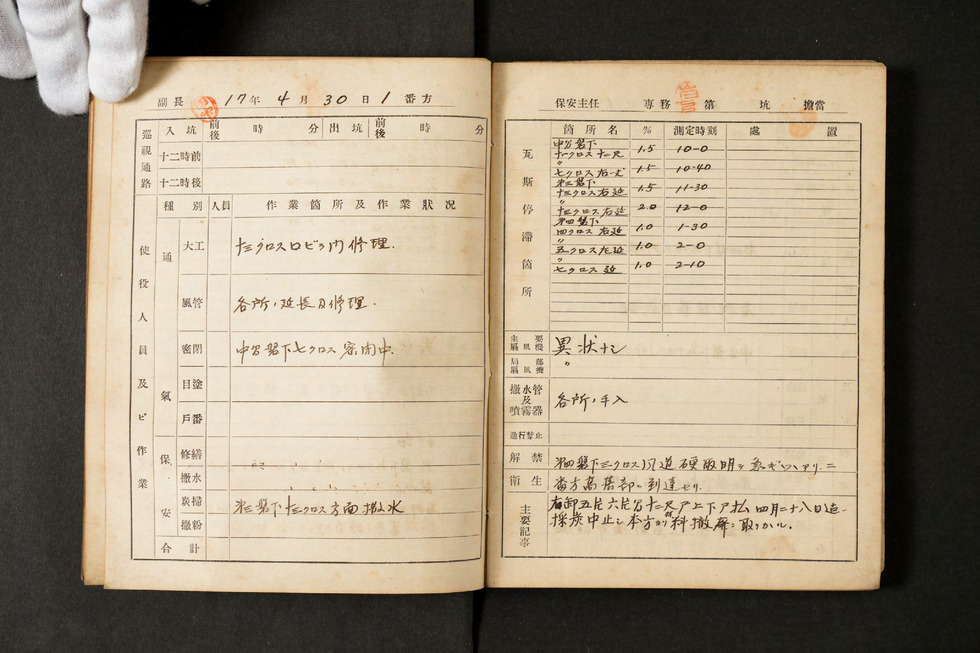 副長 17年4月30日1番方
巡視通路 入坑 前後 時 分 出坑 前後 時 分
十二時前
十二時後
使役人員及ビ作業 種別 人員 作業箇所及作業狀況
通氣 大工 十三クロスロビック門修理.
風管 各所ノ延長及修理.
密閉 中方盤下七クロス密閉中.
目塗
戶番
保安 修繕
撒水
炭掃 第三盤下十三クロス方面撒水
撒粉
合計
保安主任 專務 第 坑 擔當
瓦斯停滯箇所 箇所名 % 測定時刻 處置
中方盤下
十一クロス十二尺 1.5 10-0
〃
七クロス右一丈 1.5 10-40
第三盤下
十三クロス右延 1.5 11-30
〃
十三クロス右延 2.0 12-0
第四盤下
四クロス右延 1.0 1-30
〃
五クロス左延 1.0 2-0
〃
七クロス 延 1.0 2-10
主要扇風機 異狀ナシ
局部扇風機 〃
撒水管及噴霧器 各所ノ手入
進行禁止
解禁 第四盤下三クロス風道硬取明ヲ急ギツヽアリ. 二
衛生 番方高落部ニ到達セリ.
主要記事 右卸五片六片方十二尺戸上下ア払四月二十八日迄
採炭中止シ本方ヨリ資料撤廃ニ取リカヽル.